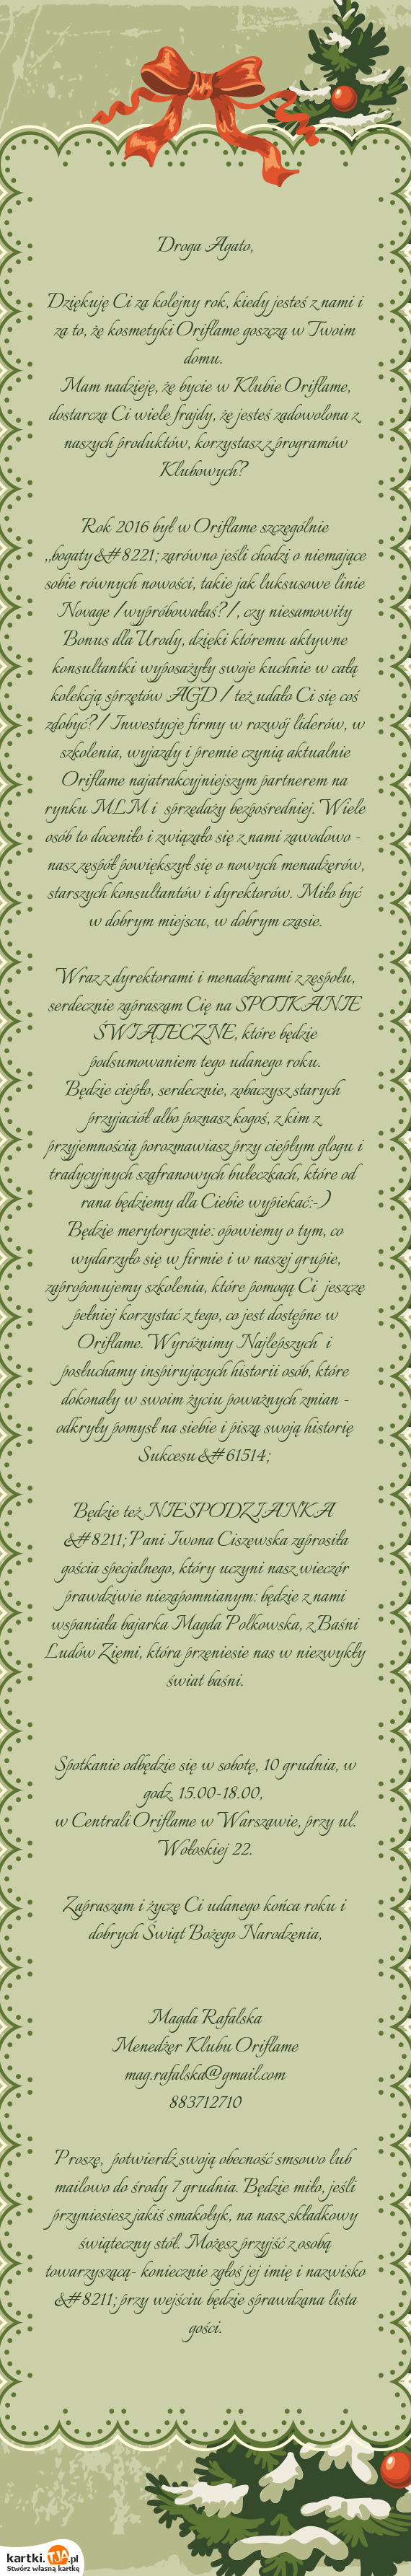 Droga Agato,
Dziękuję Ci za kolejny rok, kiedy jesteś z nami i
za to, że kosmetyki Oriflame goszczą w Twoim
domu.
Mam nadzieję, że bycie w Klubie Oriflame,
dostarcza Ci wiele frajdy, że jesteś zadowolona z
naszych produktów, korzystasz z programów
Klubowych?
Rok 2016 był w Oriflame szczególnie
,,bogaty&#8221; zarówno jeśli chodzi o niemające
sobie równych nowości, takie jak luksusowe linie
Novage /wypróbowałaś?/, czy niesamowity
Bonus dla Urody, dzięki któremu aktywne
konsultantki wyposażyły swoje kuchnie w całą
kolekcją sprzętów AGD / też udało Ci się coś
zdobyć?/ Inwestycje firmy w rozwój liderów, w
szkolenia, wyjazdy i premie czynią aktualnie
Oriflame najatrakcyjniejszym partnerem na
rynku MLM i sprzedaży bezpośredniej. Wiele
osób to doceniło i związało się z nami zawodowo -
nasz zespół powiększył się o nowych menadżerów,
starszych konsultantów i dyrektorów. Miło być
w dobrym miejscu, w dobrym czasie.
Wraz z dyrektorami i menadżerami z zespołu,
serdecznie zapraszam Cię na SPOTKANIE
ŚWIĄTECZNE, które będzie
podsumowaniem tego udanego roku.
Będzie ciepło, serdecznie, zobaczysz starych
przyjaciół albo poznasz kogoś, z kim z
przyjemnością porozmawiasz przy ciepłym glogu i
tradycyjnych szafranowych bułeczkach, które od
rana będziemy dla Ciebie wypiekać:-)
Będzie merytorycznie: opowiemy o tym, co
wydarzyło się w firmie i w naszej grupie,
zaproponujemy szkolenia, które pomogą Ci jeszcze
pełniej korzystać z tego, co jest dostępne w
Oriflame. Wyróżnimy Najlepszych i
posłuchamy inspirujących historii osób, które
dokonały w swoim życiu poważnych zmian -
odkryły pomysł na siebie i piszą swoją historię
Sukcesu &#61514;
Będzie też NIESPODZIANKA
&#8211; Pani Iwona Ciszewska zaprosiła
gościa specjalnego, który uczyni nasz wieczór
prawdziwie niezapomnianym: będzie z nami
wspaniała bajarka Magda Polkowska, z Baśni
Ludów Ziemi, która przeniesie nas w niezwykły
świat baśni.
Spotkanie odbędzie się w sobotę, 10 grudnia, w
godz. 15.00-18.00,
w Centrali Oriflame w Warszawie, przy ul.
Wołoskiej 22.
Zapraszam i życzę Ci udanego końca roku i
dobrych Świąt Bożego Narodzenia,
Magda Rafalska
Menedżer Klubu Oriflame
mag.rafalska@gmail.com
883712710
Proszę, potwierdź swoją obecność smsowo lub
mailowo do środy 7 grudnia. Będzie miło, jeśli
przyniesiesz jakiś smakołyk, na nasz składkowy
świąteczny stół. Możesz przyjść z osobą
towarzyszącą- koniecznie zgłoś jej imię i nazwisko
&#8211; przy wejściu będzie sprawdzana lista
gości.
kartki.TJA.pl
Stwórz własną kartkę